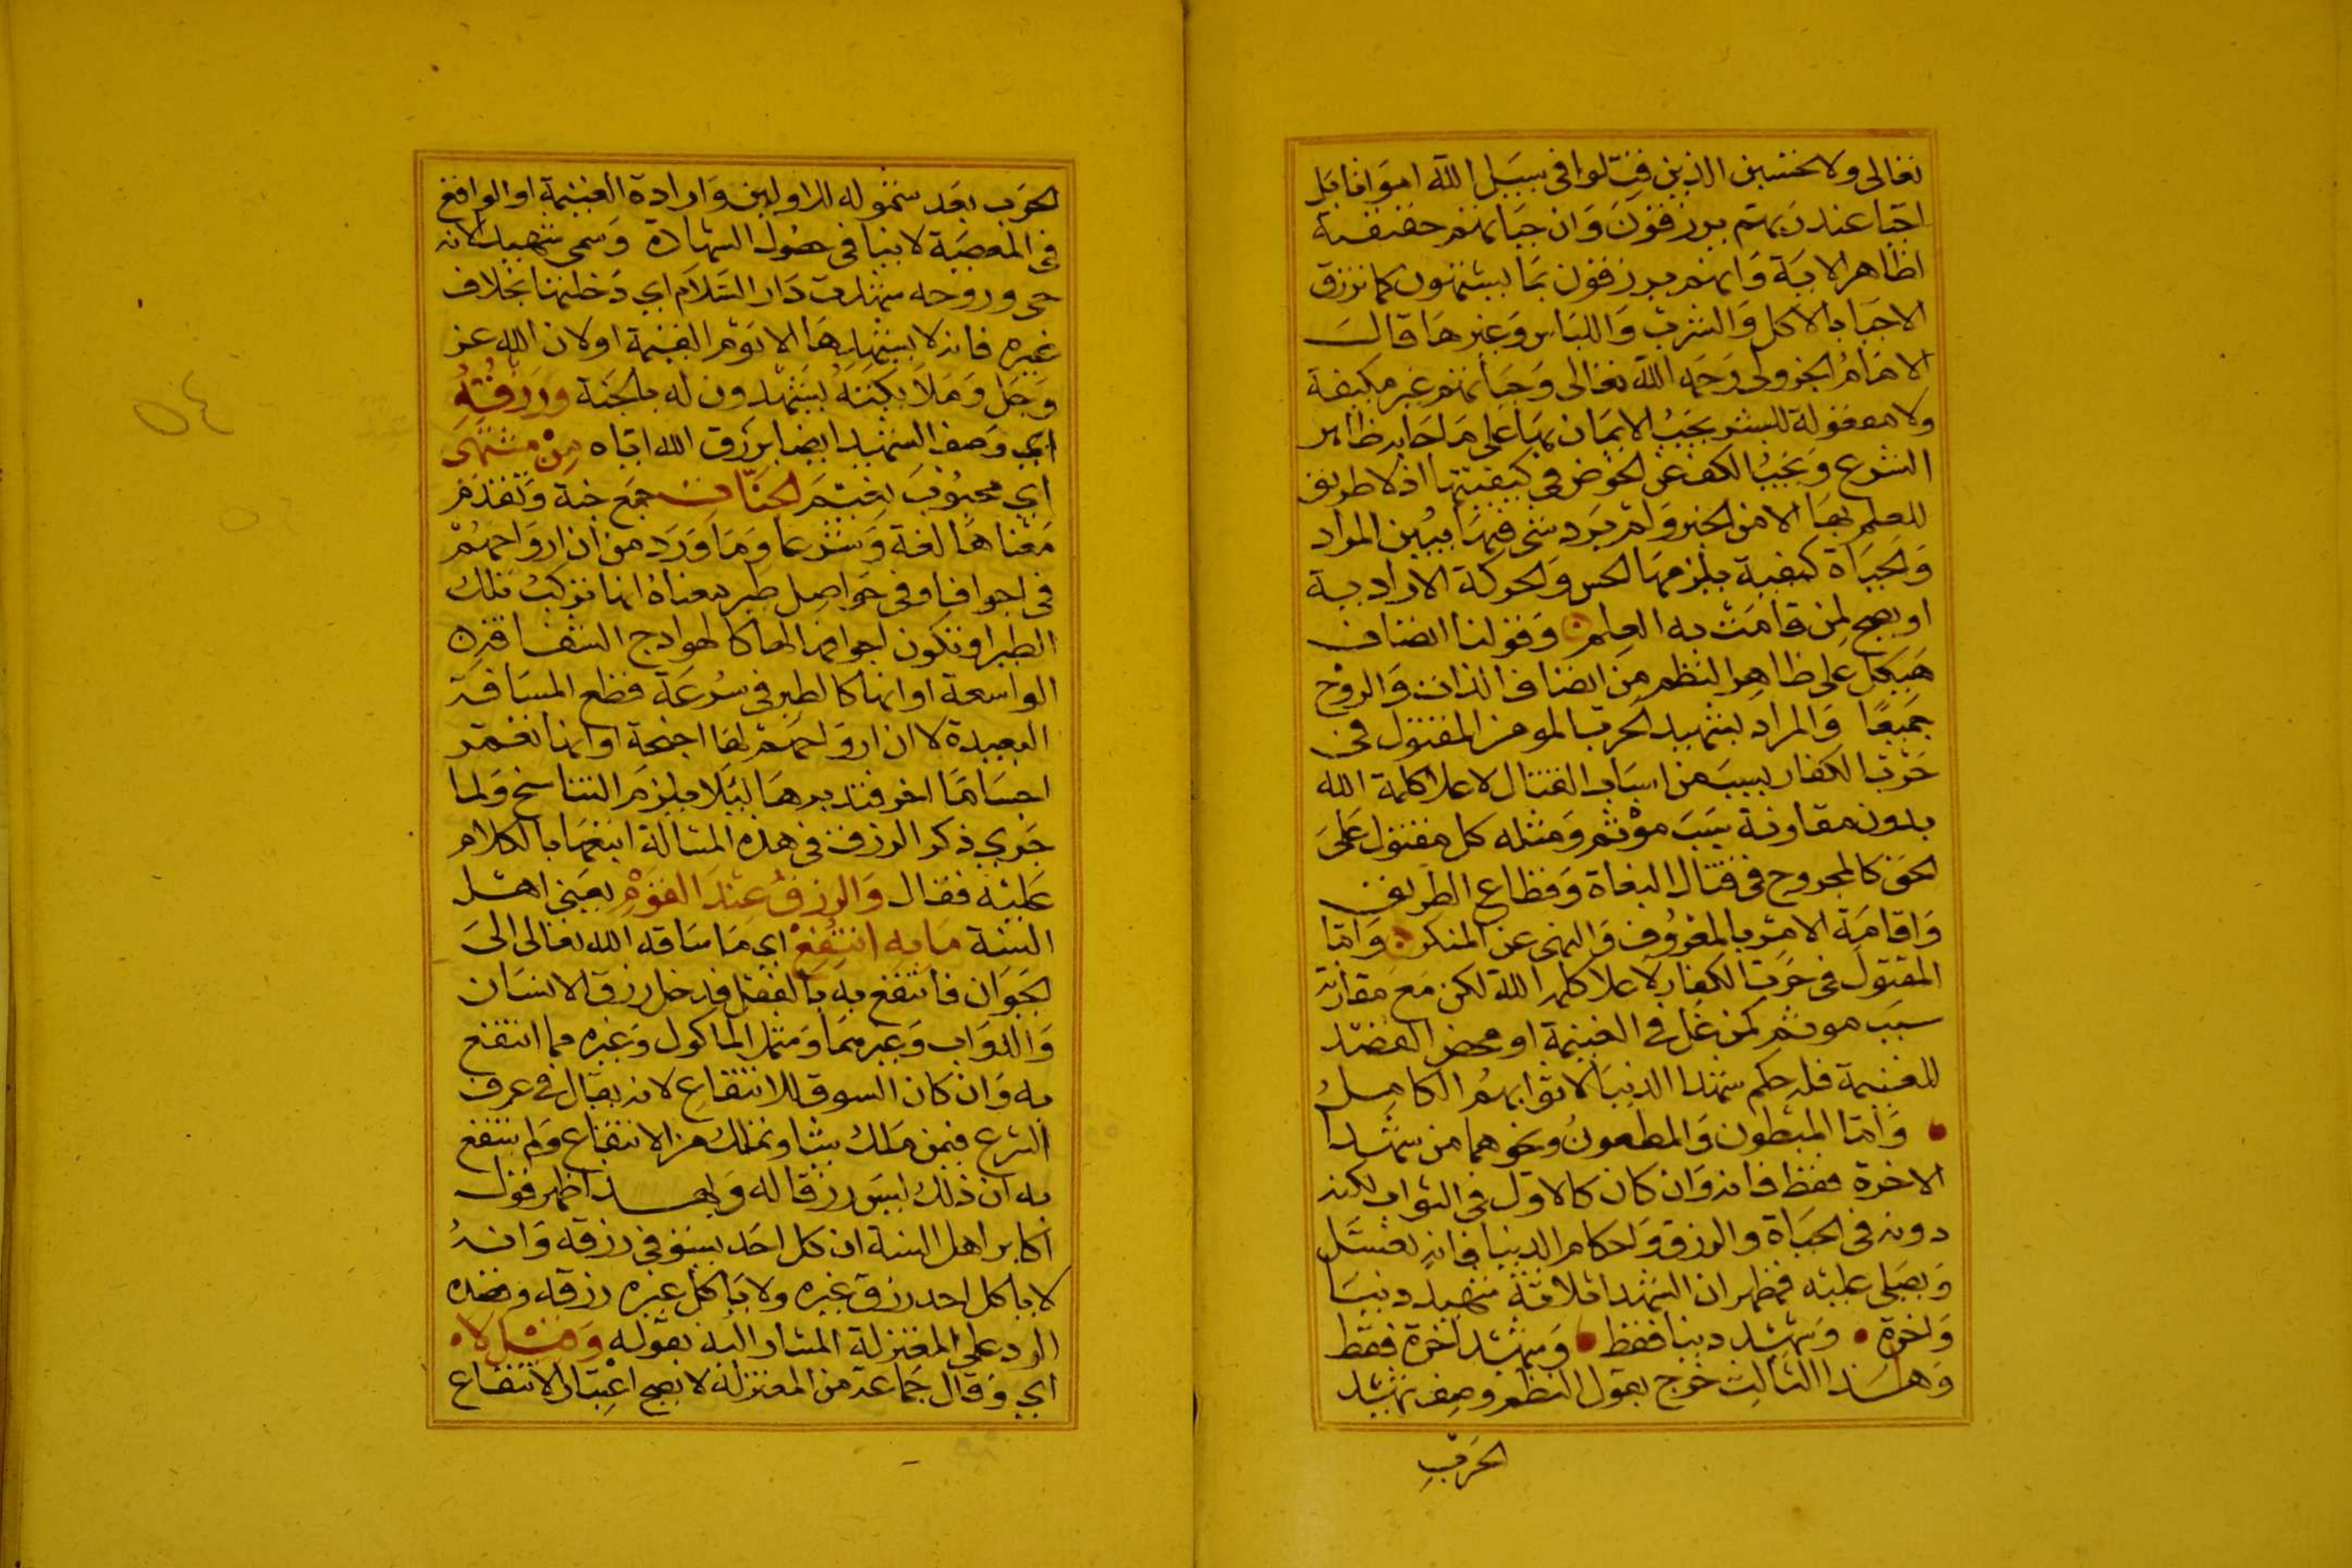 تعالى ولا تحسبن الذين قتلوا في سبيل الله امواتا بل
احيا عند ربهم يرزقون وان حياتهم حقيقية
لظاهر الاية وانهم يرزقون مما يشتهون كما ترزق
الاحيا بالاكل والشرب واللباس وغيرها قال
الامام الجزولي رحمه الله تعالى وحياتهم غير مكيفة
ولا معقولة للبشر يجب الايمان بها على ما جا به ظاهر
الشرع ويجب الكف عن الخوض في كيفيتها اذ لا طريق
للعلم بها الا من الخبر ولم يرد شي فيها يبين المراد
والحياة كيفية يلزمها الحس والحركة الارادية
او يصح لمن قامت به العلم وقولنا اتصاف
هيكل على ظاهر النظم من اتصاف الذات والروح
جميعا والمراد بشهيد الحرب المومن المقتول في
حرب الكفار بسبب من اسباب القتال لاعلا كلمة الله
بدون مقارنة سبب موثم ومثله كل مقتول على
الحق كالمجروح في قتال البغاة وقطاع الطريق
واقامة الامر بالمعروف والنهي عن المنكر واما
المقتول في حرب الكفار لاعلا كلمة الله لكن مع مقارنة
سبب موثم كمن غل في الغنيمة او محض القصد
للغنيمة فله حكم شهدا الدنيا لا ثوابهم الكامل
واما المبطون والمطعون ونحوهما من شهدا
الاخرة فقط فانه وان كان كالاول في الثواب لكنه
دونه في الحياة والرزق واحكام الدنيا فانه يغسل
ويصلى عليه فظهر ان الشهدا ثلاثة شهيد دنيا
واخرة وشهيد دنيا فقط وشهيد اخرة فقط
وهذا الثالث خرج بقول النظم وصف شهيد
الحرب
الحرب بعد شموله للاولين وارادة الغنيمة او الواقع
في المعصية لا ينافي حصول الشهادة وسمي شهيدا لانه
حي وروحه شهدت دار السلام اي دخلتها بخلاف
غيره فانه لا يشهدها الا يوم القيمة او لان الله عز
وجل وملايكته يشهدون له بالجنة ورزقه
اي وصف الشهيد ايضا برزق الله اياه من مشتهى
اي محبوب نعيم الجنات جمع جنة وتقدم
معناها لغة وشرعا وما ورد من ان ارواحهم
في اجواف او في حواصل طير معناه انها تركب تلك
الطير او تكون اجوافها لها كالهوادج الشفافة
الواسعة او انها كالطير في سرعة قطع المسافة
البعيدة لا ان ارواحهم لها اجنحة او انها تعمر
اجساما اخر فتدبرها ليلا يلزم التناسخ ولما
جري ذكر الرزق في هذه المسالة اتبعها بالكلام
عليه فقال والرزق عند القوم يعني اهل
السنة ما به انتفع اي ما ساقه الله تعالى الى
الحيوان فانتفع به بالفعل فدخل رزق الانسان
والدواب وغيرهما وشمل الماكول وغيره مما انتفع
به وان كان السوق للانتفاع لانه يقال في عرف
الشرع فيمن ملك شيا وتمكن من الانتفاع ولم ينتفع
به ان ذلك ليس رزقا له وبهذا ظهر قول
اكابر اهل السنة ان كل احد يستوفي رزقه وانه
لا ياكل احد رزق غيره ولا ياكل غيره رزقه وقصده
الرد على المعتزلة المشار اليه بقوله وقيل لا
اي وقال جماعة من المعتزلة لا يصح اعتبار الانتفاع